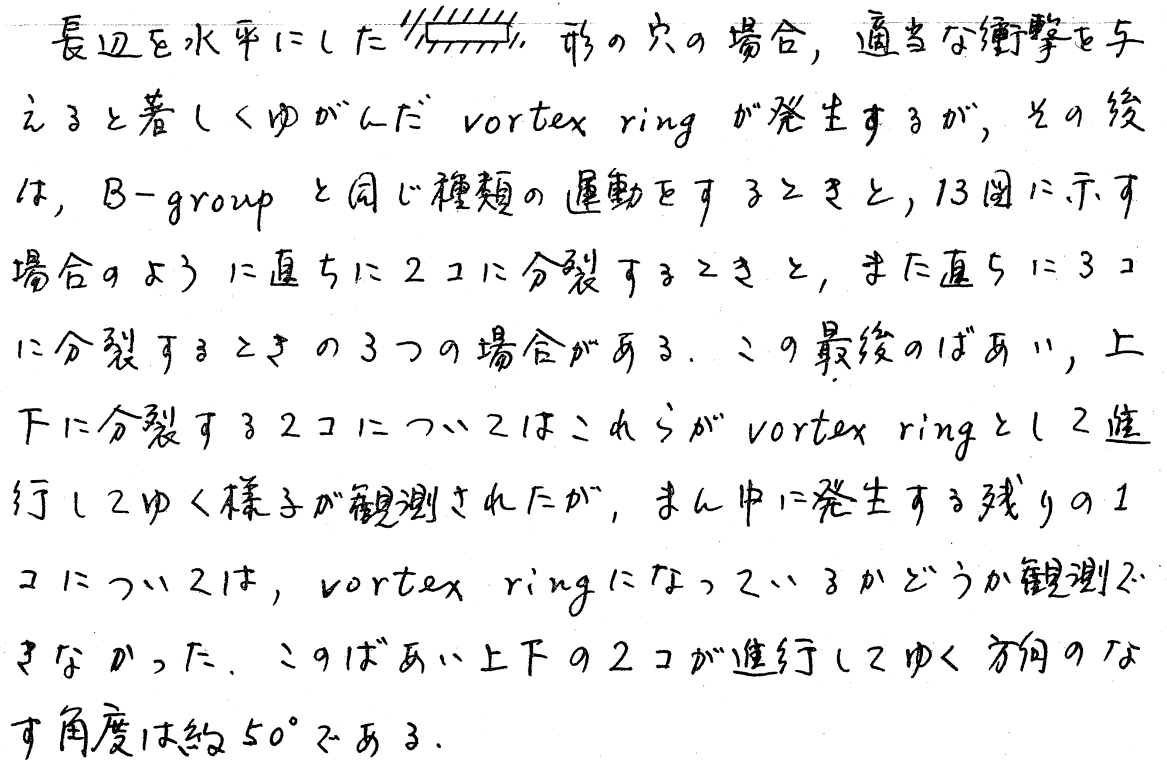 長辺を水平にした 形の穴の場合，適当な衝撃を与
えると著しくゆがんだ vortex ring が発生するが，その後
は，B-group と同じ種類の運動をするときと，13図に示す
場合のように直ちに2コに分裂するときと，また直ちに3コ
に分裂するときの3つの場合がある．この最後のばあい，上
下に分裂する2コについてはこれらが vortex ring として進
行してゆく様子が観測されたが，まん中に発生する残りの1
コについては，vortex ring になっているかどうか観測で
きなかった．このばあい上下の2コが進行してゆく方向のな
す角度は約50°である．